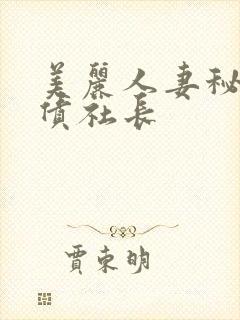 美麗人妻秘
債社長
賈東明